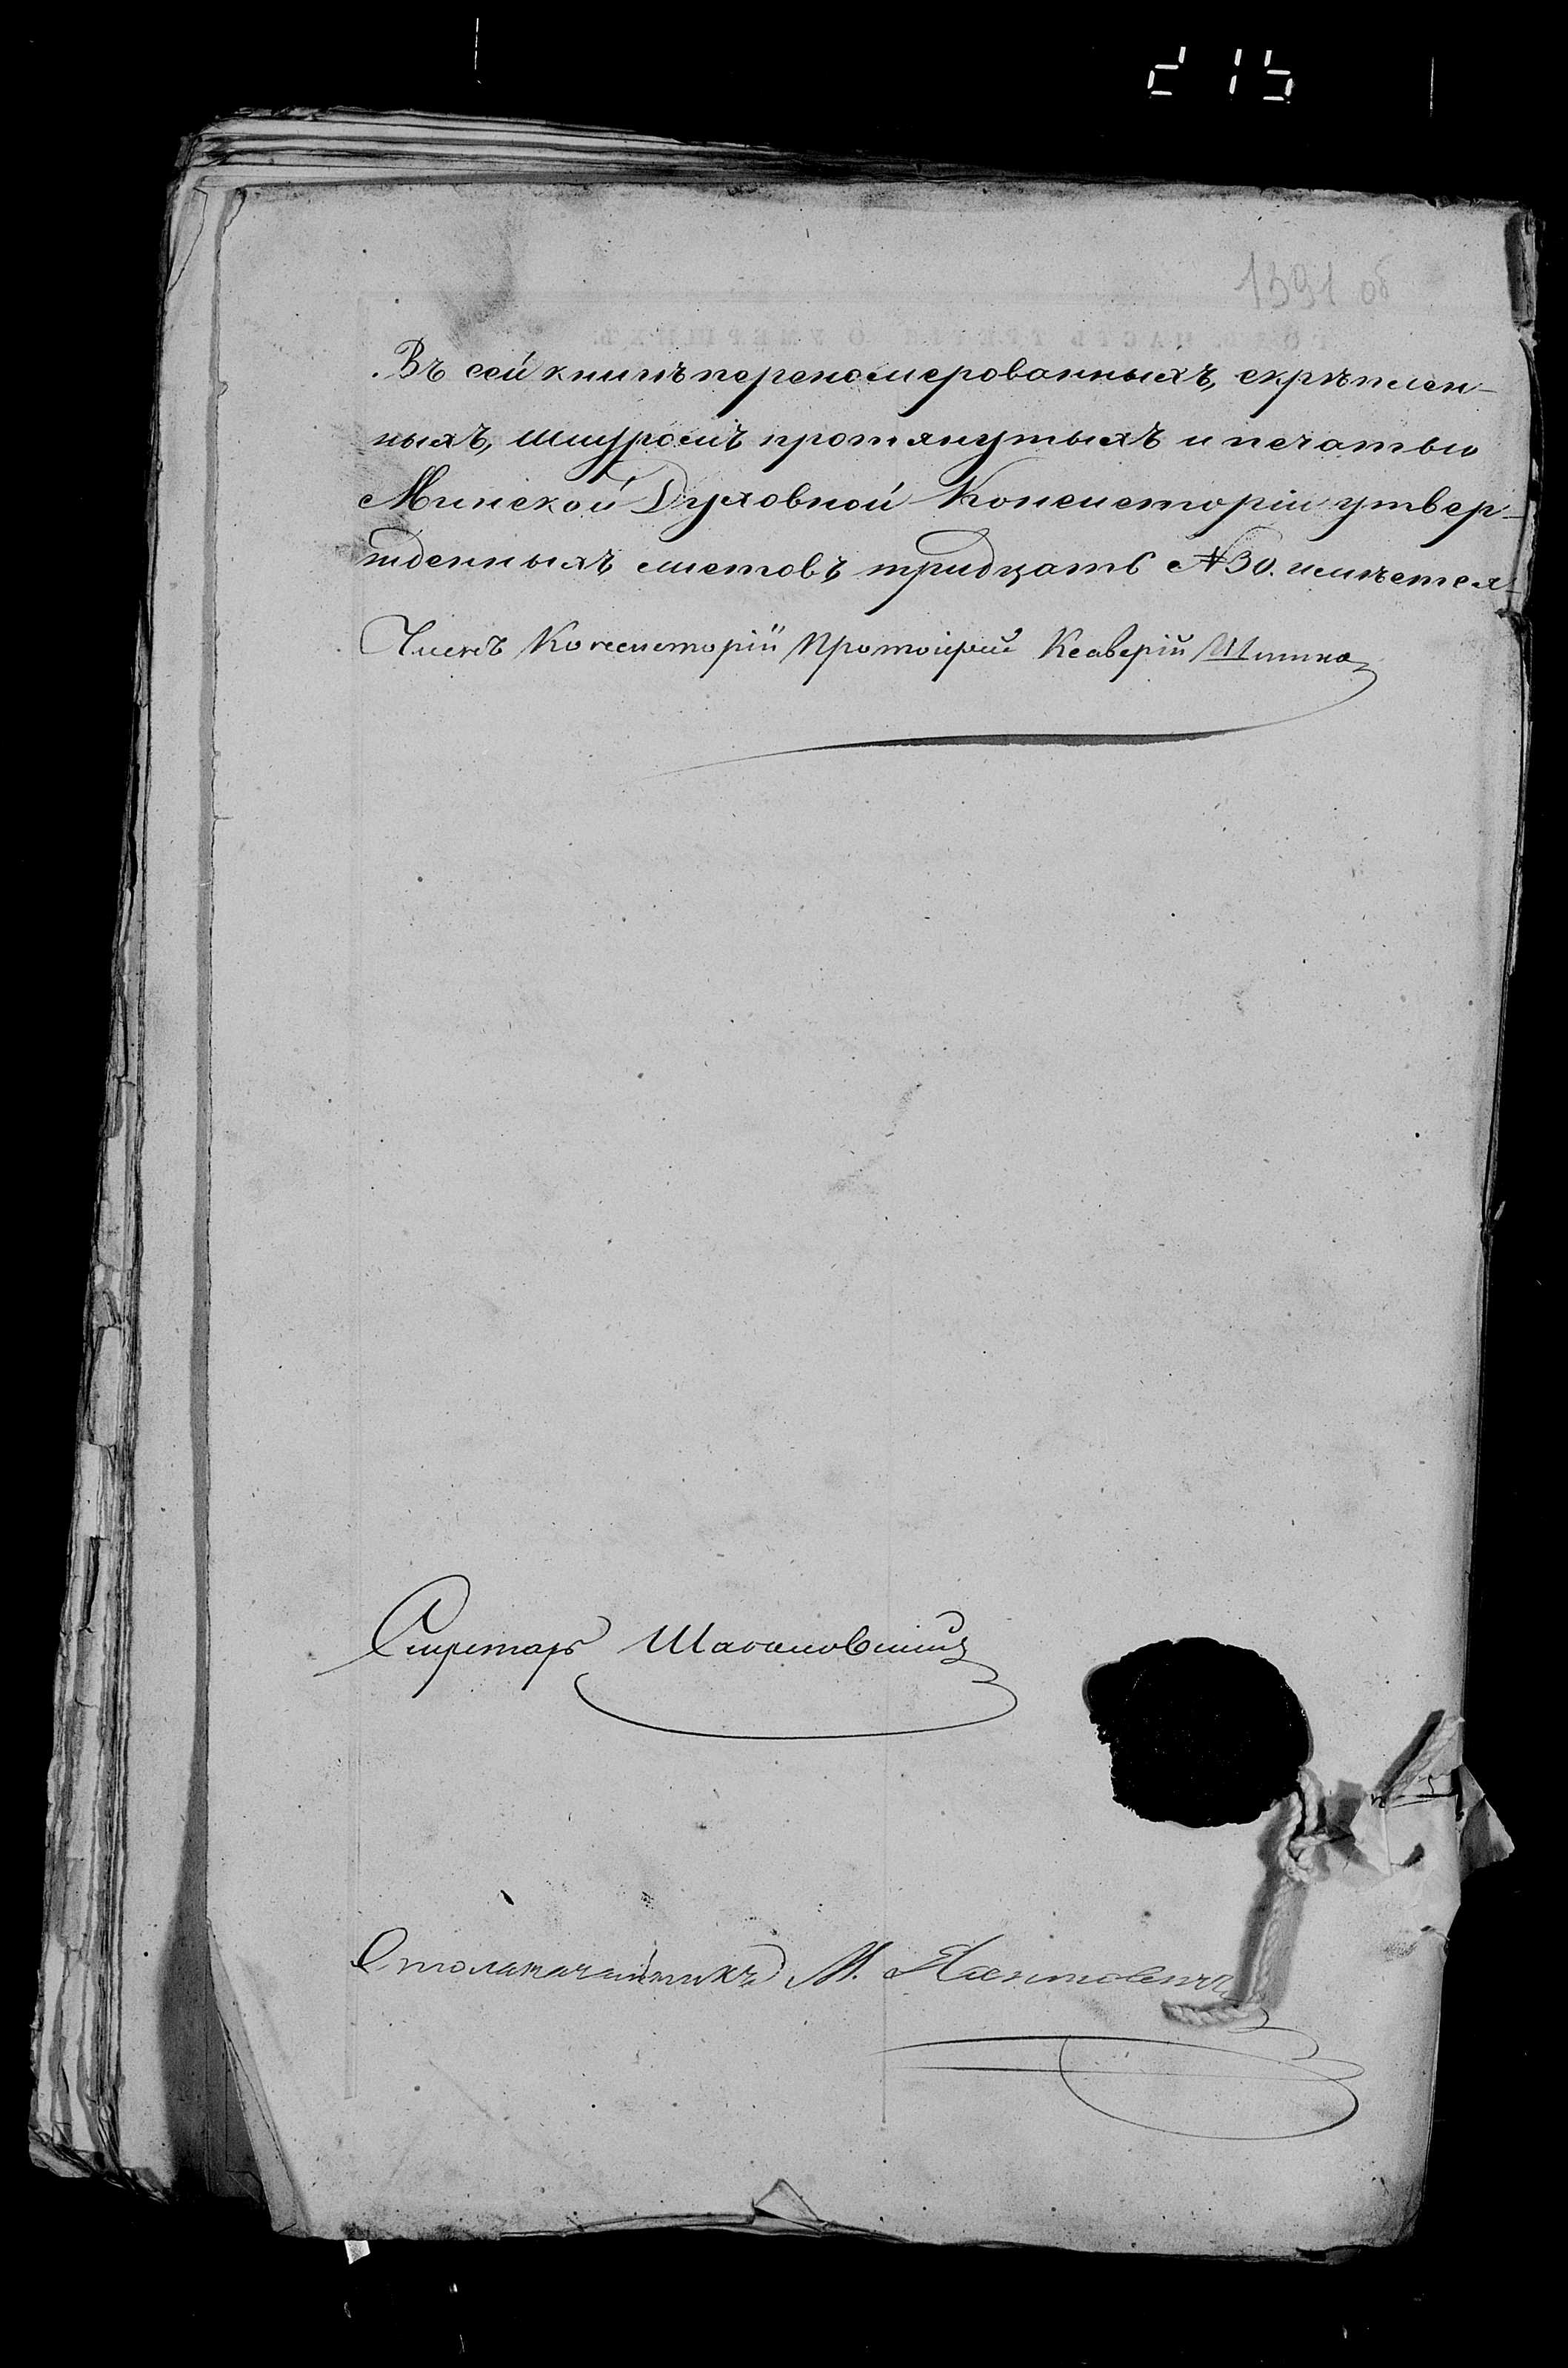 215
1391 об
Въ сей книгѣ перенолмерованныхъ, скрѣплен-
ныхъ, шнуромъ протянутыхъ и печатью
Минской Духовной Консисторіи утвер-
жденныхъ листовъ тридцать №30. имѣется
Членъ Консисторіи Протоіерей Ксаверій
Секретарь
Столоначальникъ М.